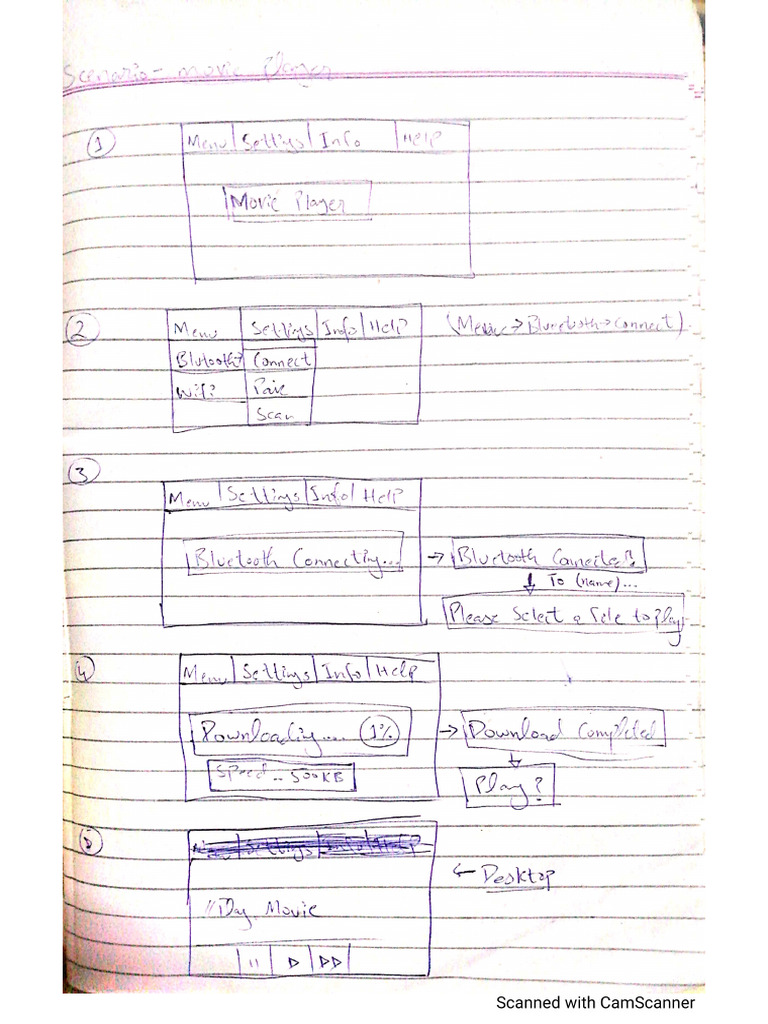 Scenario - movie Player
1
Menu Settings Info Help
Movie Player
2
Menu Settings Info Help (Menu → Bluetooth → Connect)
Blutooth? Connect
Wifi? Pair
Scan
3
Menu Settings Info Help
Bluetooth Connecting... → Bluetooth Connected!
↓ To (name)...
Please Select a file to play
4
Menu Settings Info Help
Downloading... 1% → Download Completed
Speed.. 500KB ↓
Play?
5
Menu Settings Info Help
← Desktop
//Day Movie
Scanned with CamScanner